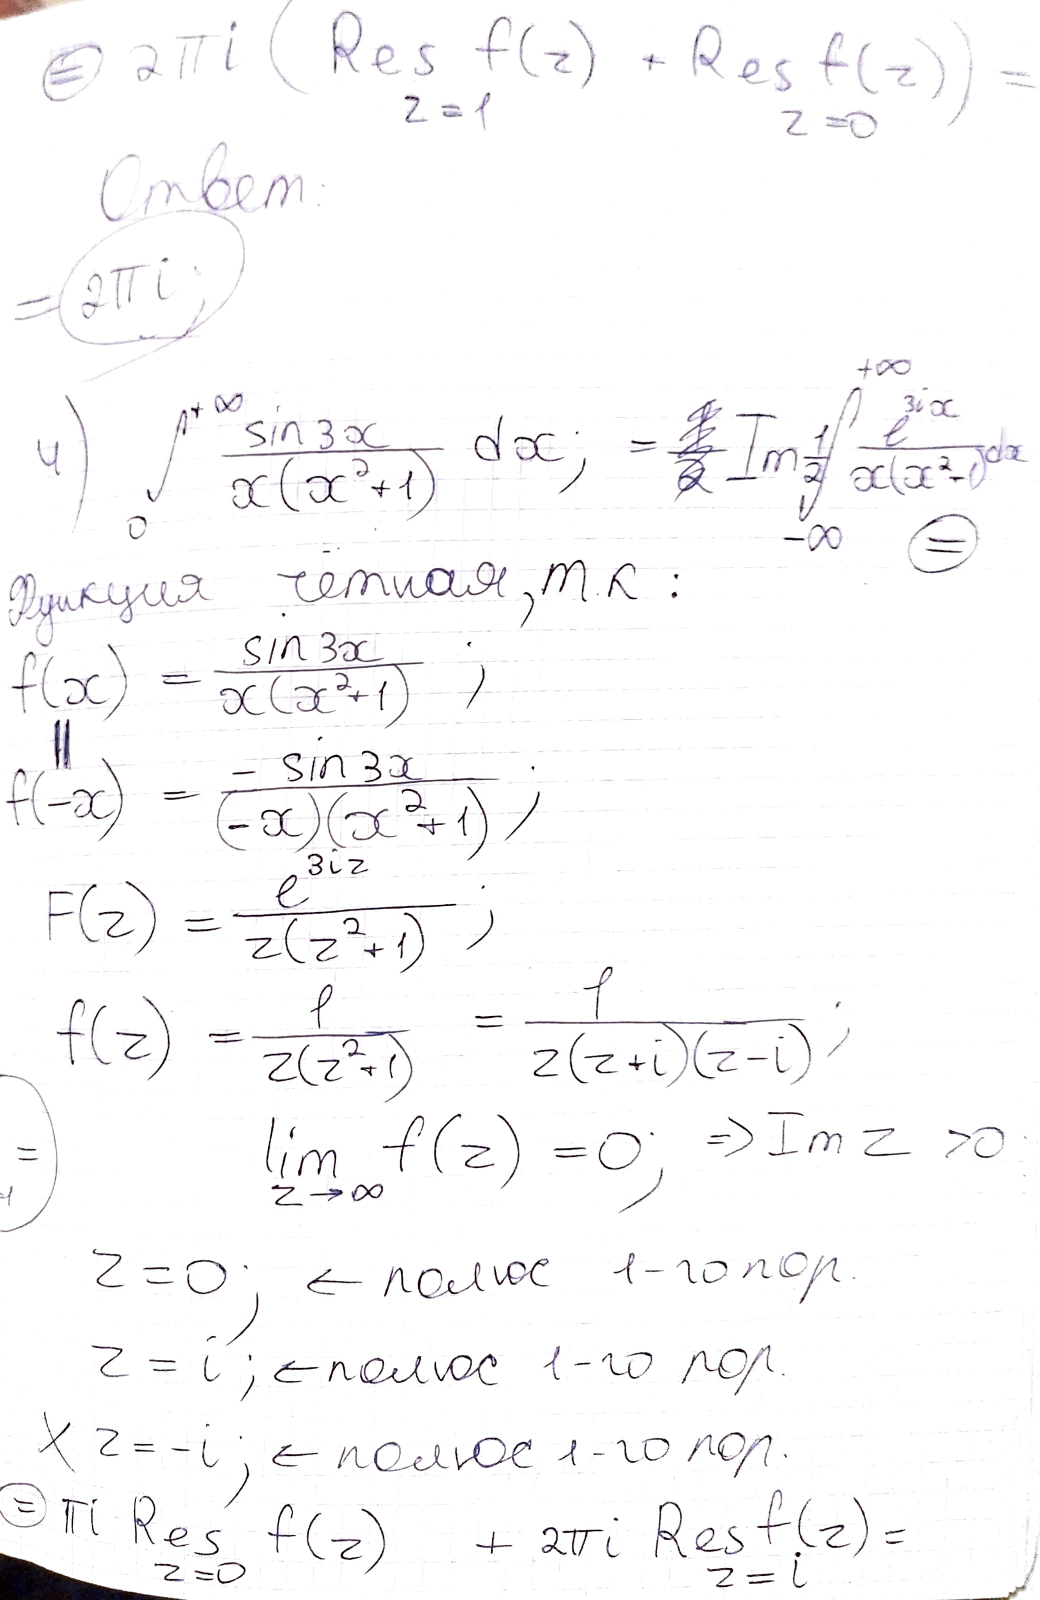 ⊜ 2πi ( Res f(z) + Res f(z)) =
z=1 z=0
Ответ:
= 2πi;
4) ∫₀^{+∞} sin3x / x(x²+1) dx; = Im 1/2 ∫_{-∞}^{+∞} e^{3ix} / x(x²-1) dx ⊜
Функция чётная, т.к:
f(x) = sin3x / x(x²+1) ;
||
f(-x) = -sin3x / (-x)(x²+1) ;
F(z) = e^{3iz} / z(z²+1) ;
f(z) = 1 / z(z²+1) = 1 / z(z+i)(z-i) ;
= lim f(z) = 0; => Im z >0
z→∞
z=0; ← полюс 1-го пор.
z = i; ← полюс 1-го пор.
X z=-i; ← полюс 1-го пор.
⊜ πi Res f(z) + 2πi Res f(z) =
z=0 z=i